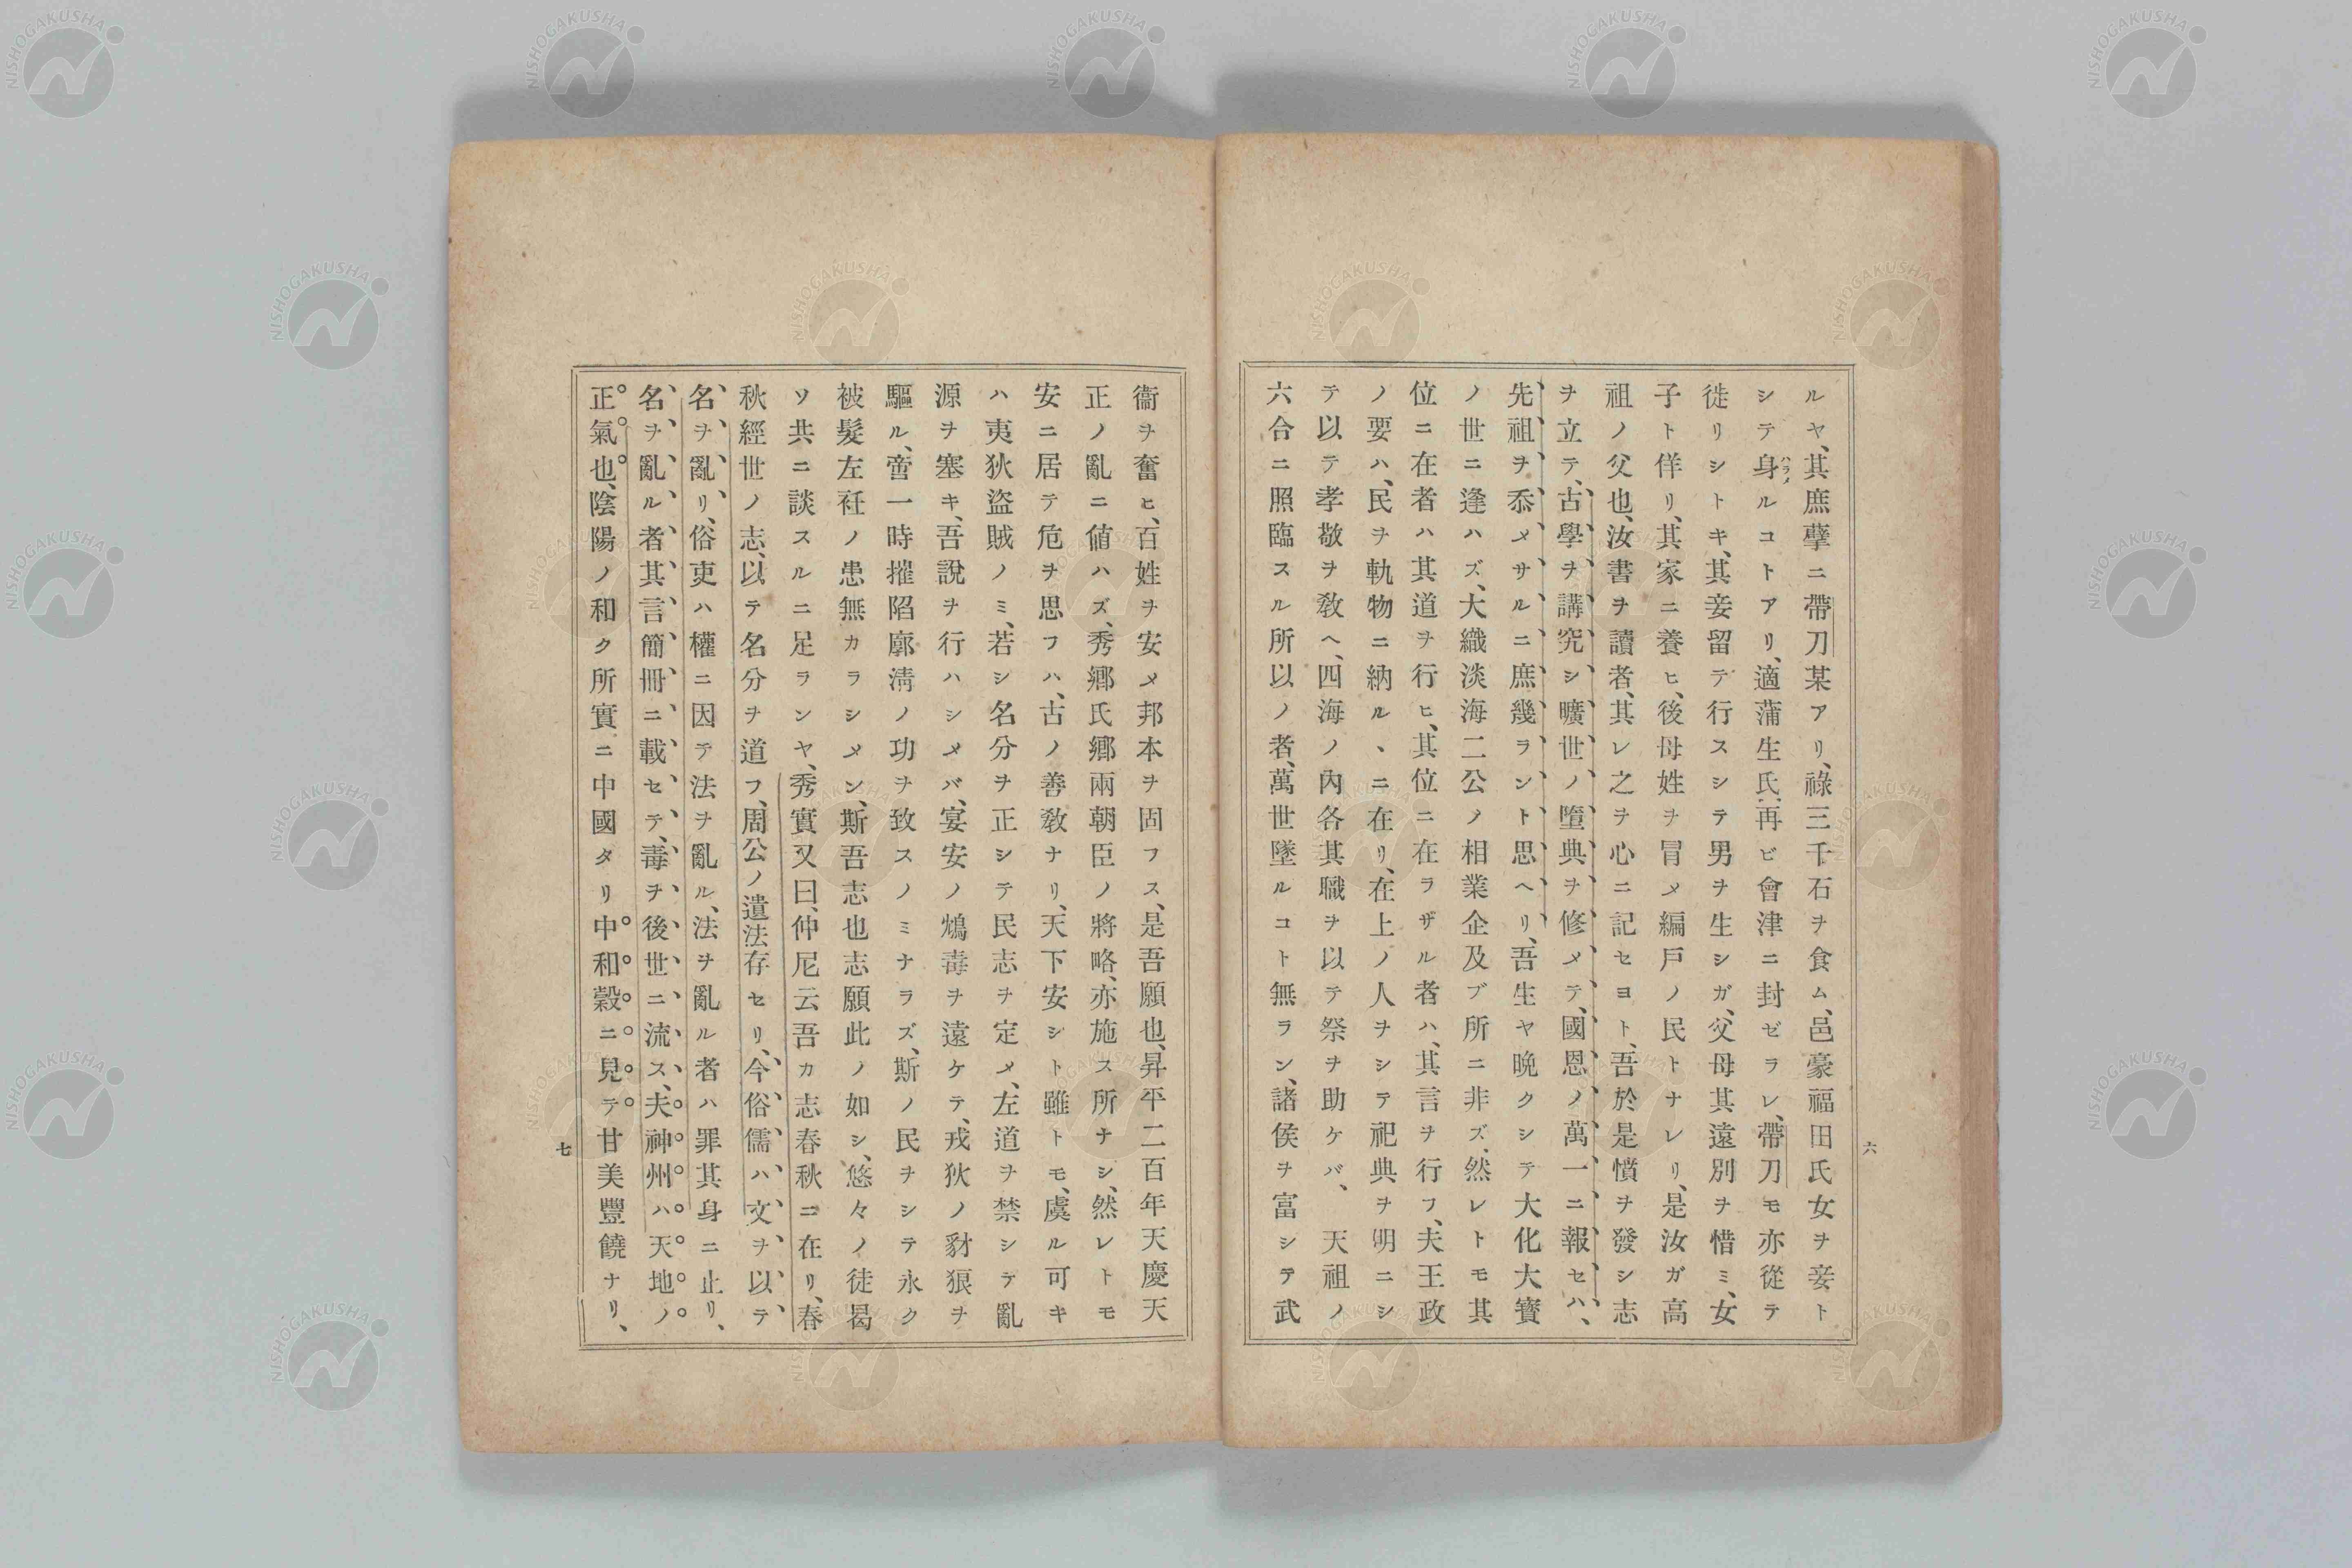 ルヤ、其庶孽ニ帶刀某アリ、祿三千石ヲ食ム、邑豪福田氏女ヲ妾ト
シテ身ルコトアリ、適蒲生氏再ビ會津ニ封ゼラレ、帶刀モ亦從テ
ハラメ
徙リシトキ、其妾留テ行スシテ男ヲ生シガ、父母其遠別ヲ惜ミ、女
子ト佯リ、其家ニ養ヒ、後母姓ヲ冒メ編戸ノ民トナレリ、是汝ガ高
祖ノ父也、汝書ヲ讀者、其レ之ヲ心ニ記セヨト、吾於是憤ヲ發シ志
ヲ立テ、古學ヲ講究シ曠世ノ墮典ヲ修メテ、國恩ノ萬一ニ報セハ、
先祖ヲ忝メサルニ庶幾ラント思ヘリ、吾生ヤ晩クシテ大化大寶
ノ世ニ逢ハズ、大織淡海二公ノ相業企及ブ所ニ非ズ、然レトモ其
位ニ在者ハ其道ヲ行ヒ、其位ニ在ラザル者ハ、其言ヲ行フ、夫王政
ノ要ハ、民ヲ軌物ニ納ル、ニ在リ、在上ノ人ヲシテ祀典ヲ明ニシ
テ以テ孝敬ヲ敎ヘ、四海ノ內各其職ヲ以テ祭ヲ助ケバ、 天祖ノ
六合ニ照臨スル所以ノ者、萬世墜ルコト無ラン、諸侯ヲ富シテ武
六
衞ヲ奮ヒ、百姓ヲ安メ邦本ヲ固フス、是吾願也、昇平二百年天慶天
正ノ亂ニ値ハズ、秀鄉氏鄉兩朝臣ノ將略、亦施ス所ナシ、然レトモ
安ニ居テ危ヲ思フハ、古ノ善敎ナリ、天下安シト雖トモ、虞ル可キ
ハ夷狄盜賊ノミ、若シ名分ヲ正シテ民志ヲ定メ、左道ヲ禁シテ亂
源ヲ塞キ、吾說ヲ行ハシメバ、宴安ノ鴆毒ヲ遠ケテ、戎狄ノ豺狼ヲ
驅ル、啻一時摧陷廓淸ノ功ヲ致スノミナラズ、斯ノ民ヲシテ永ク
被髮左衽ノ患無カラシメン、斯吾志也志願此ノ如シ、悠々ノ徒曷
ソ共ニ談スルニ足ランヤ、秀實又曰、仲尼云吾カ志春秋ニ在リ、春
秋經世ノ志、以テ名分ヲ道フ、周公ノ遺法存セリ、今俗儒ハ文ヲ以テ
名ヲ亂リ、俗吏ハ權ニ因テ法ヲ亂ル、法ヲ亂ル者ハ罪其身ニ止リ、
名ヲ亂ル者其言簡冊ニ載セテ、毒ヲ後世ニ流ス、夫神州ハ天地ノ
正氣也、陰陽ノ和ク所實ニ中國タリ中和穀ニ見テ甘美豐饒ナリ、
七